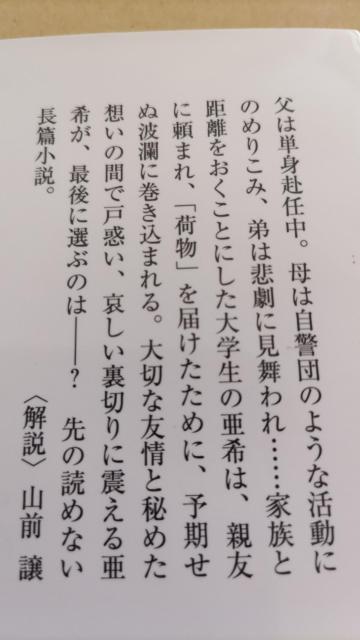 父は単身赴任中。母は自警団のような活動に
のめりこみ、弟は悲劇に見舞われ……家族と
距離をおくことにした大学生の亜希は、親友
に頼まれ、「荷物」を届けたために、予期せ
ぬ波瀾に巻き込まれる。大切な友情と秘めた
想いの間で戸惑い、哀しい裏切りに震える亜
希が、最後に選ぶのは――？　先の読めない
長篇小説。
〈解説〉山前 譲